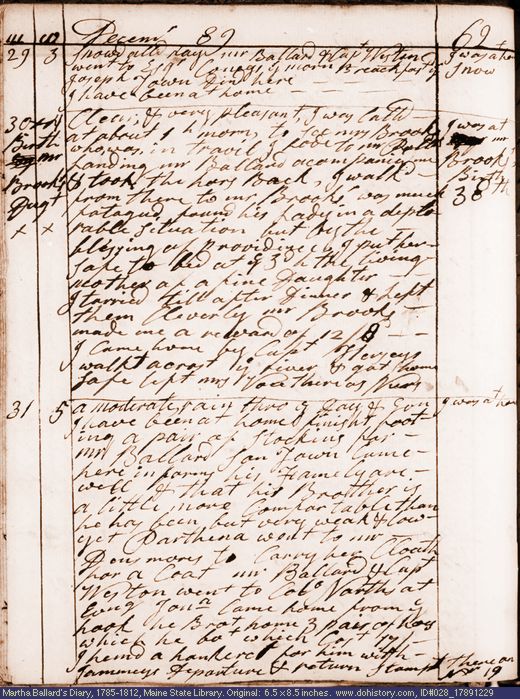 Decem^r 89 69
29 3 Snowd all ye day. mr Ballard & Capt Weston I was at home
went to Company morn Breackfast Snow
Joseph Town Dind here
I have been at home
30 4 Clear, & very pleasant, I was Calld I was at mr
Birth at about 1 h morn, to See mrs Brooks Brook's
mr who was in travil, I rode to mr Birth
Brook's Landing mr Ballard accompanied me 38th
Dagt & took the hors Back, I walkd
x x from there to mr Brooks. was much
fatagud, found his Lady in a deplo
rable Situation but by the
blessing of Providince I put her
Safe to bed at 3 h the living
mother of a fine Daughter
I tarried till after Dinner & left
them Cleverly mr Brooks
made me a reward of 12/8
I Came home by Capt Herseys
walkt across ye river & got home
Safe left my
31 5 a moderate rain thro ye day & Evn I was at home
I have been at home finisht foot
ing a pair of Stockins for
mr Ballard Son Town Came
here informs his Family are
well & that his Brother is
a little more Comfortable than
he has been but very weak & low
yet Parthena went to mr
Densmores to Carry her Cloath
for a Coat mr Ballard & Capt
Weston went to Colo Norths at
Evng Jona Came home from ye
hook he Brot home 3 pair of
which he bot which Cost
I hemd a hankerct for him with
Jammys Departure & return Stampt there on
Martha Ballard's Diary, 1785-1812, Maine State Library. Original: 6.5 x 8.5 inches. www.dohistory.org ID#028_17891229